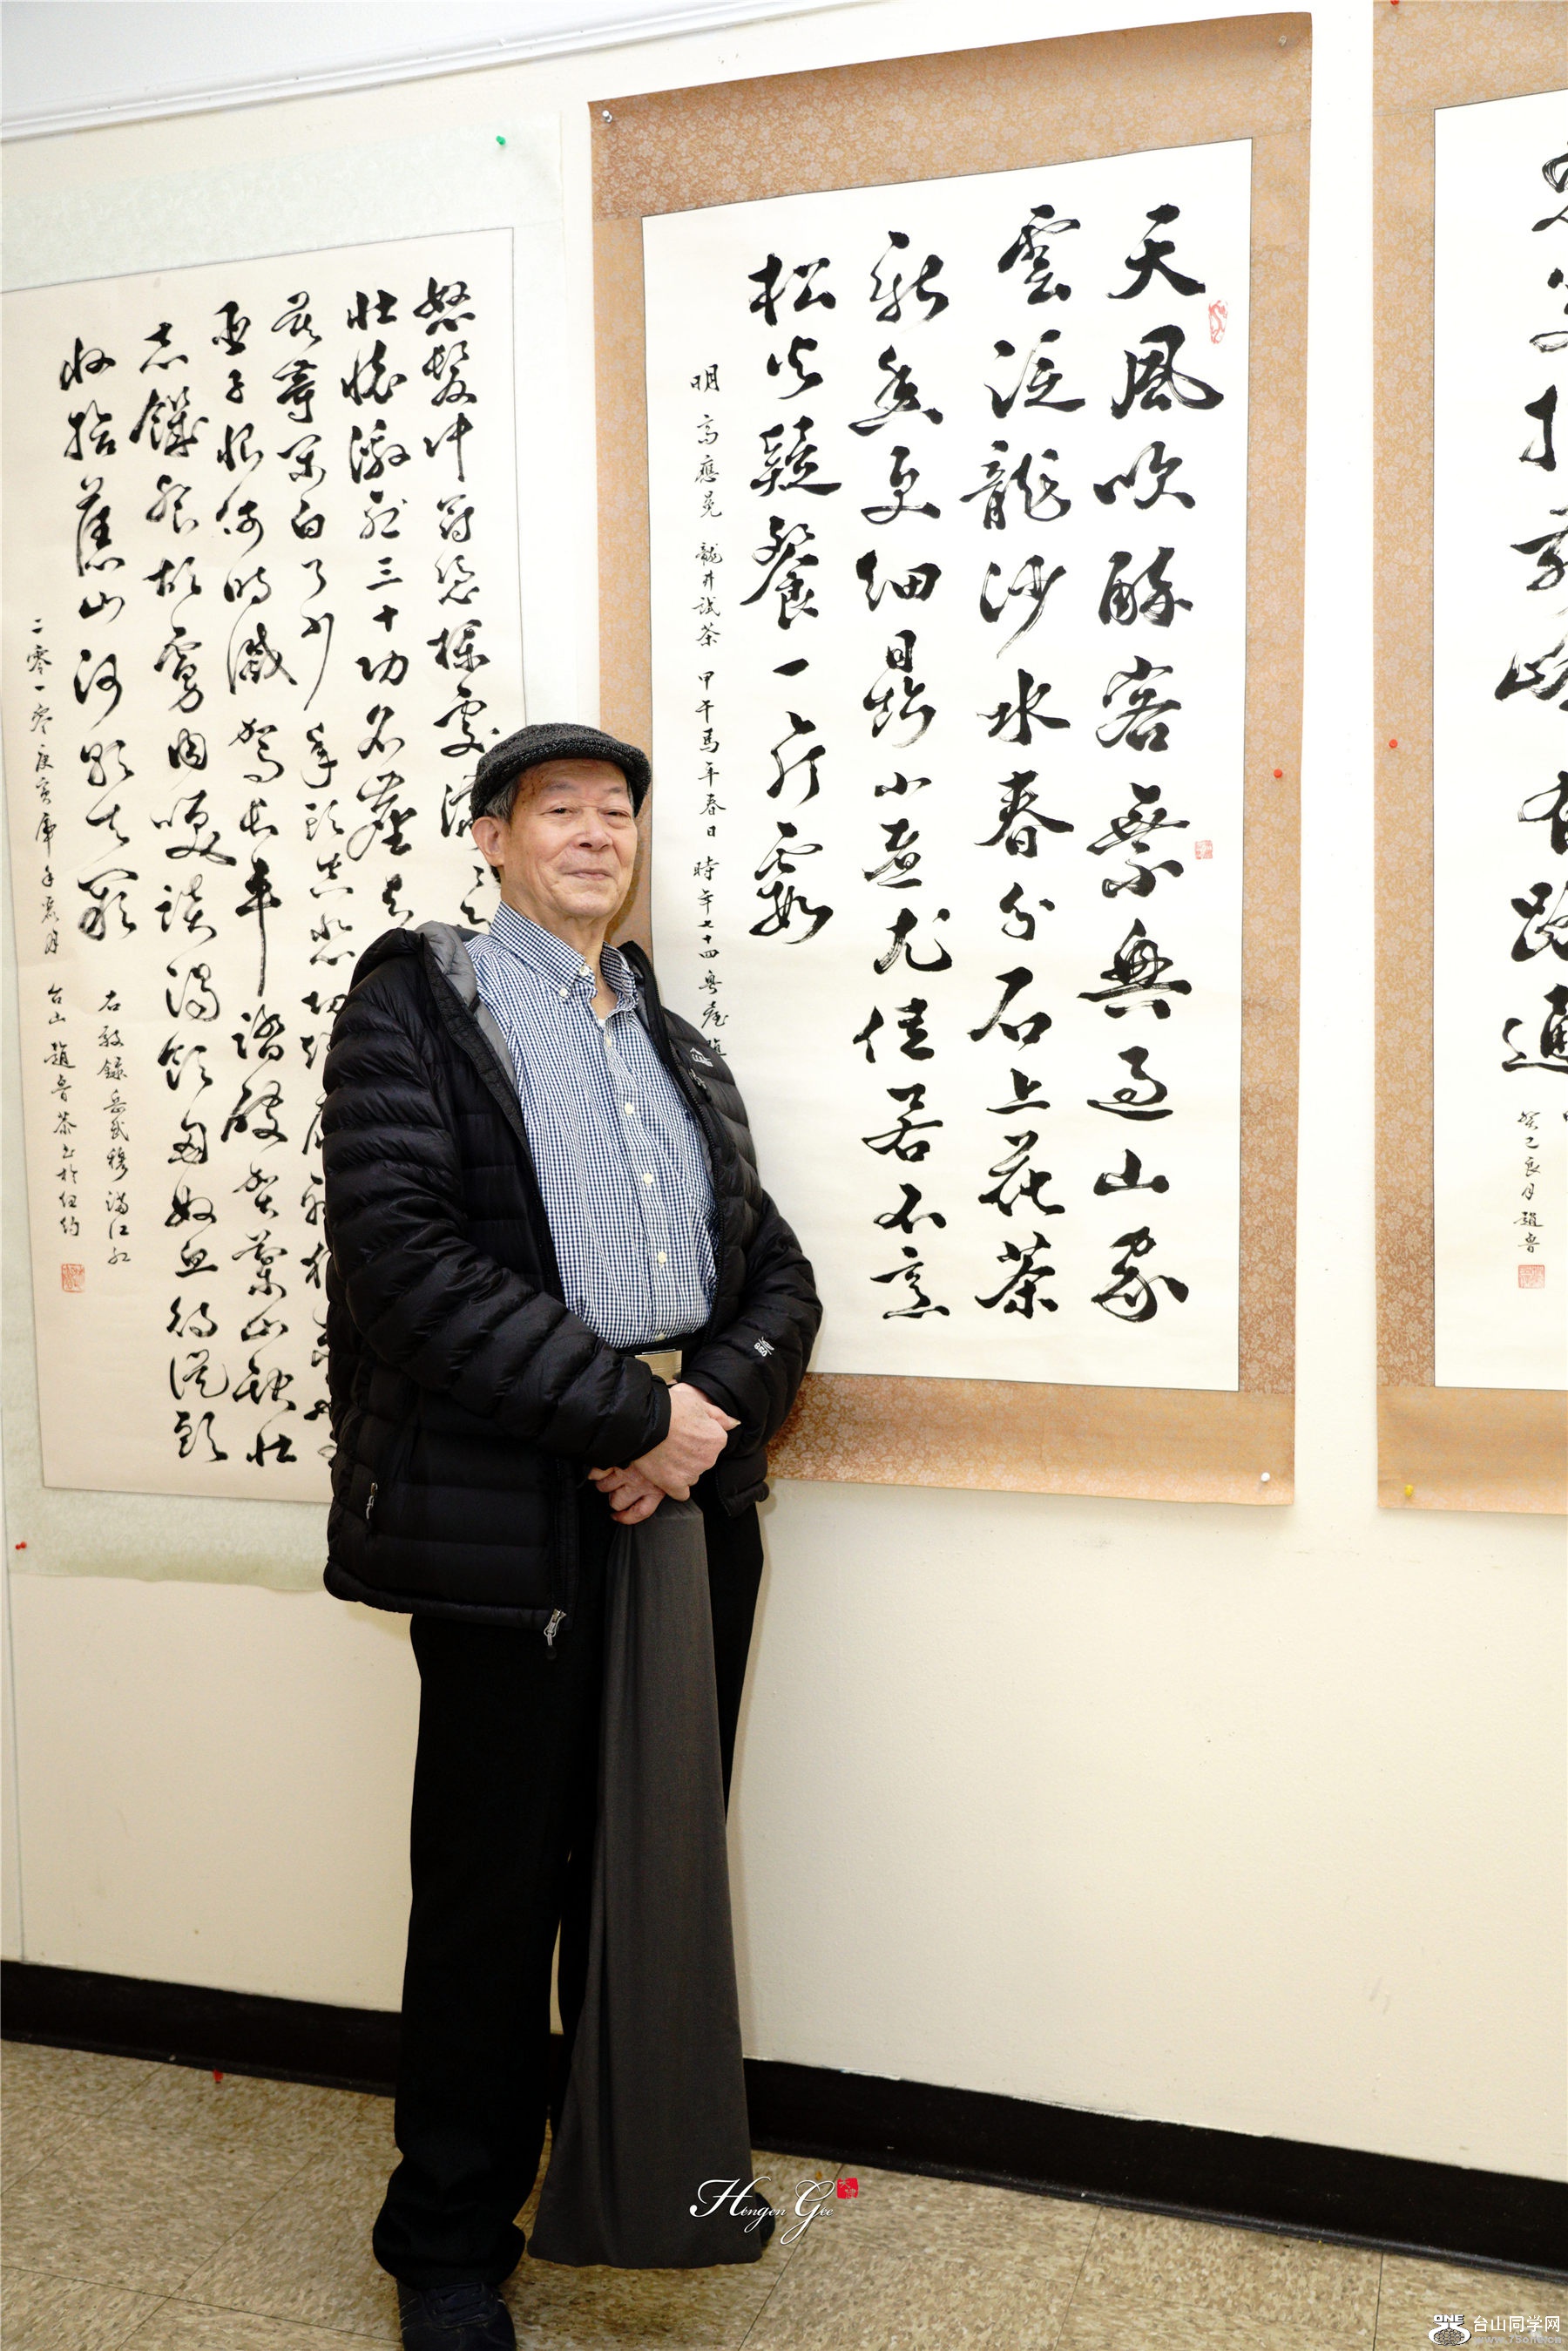 有路通
癸巳良月 趙魯
天風吹醉客乘興過山家
雲泛龍沙水春分石上花茶
新香更細鼎小煮尤佳若不烹
松火疑餐一片霞
明 高應冕 龍井試茶 甲午馬年春日 時年七十四 粤臺趙
怒髮冲冠凭欄處瀟
壯懷激烈三十功名塵与
莫等閑白了少年頭空悲切靖康耻猶未雪
臣子恨何時滅駕長車踏破賀蘭山缺壯
志饑餐胡虜肉笑談渴飲匈奴血待從頭
收拾舊山河朝天闕
右敬錄岳武穆滿江紅
二零一零庚寅虎年 月 台山趙魯恭書於紐約
Hingon Gee
ONE 台山同学网